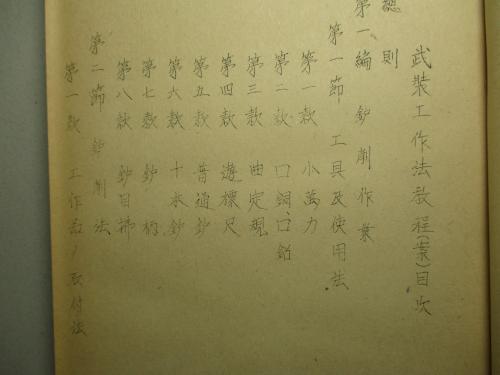 武裝工作法教程(案)目次
總則
第一編 鈩削作業
第一節 工具及使用法
第一款 小萬力
第二款 口銅、口鉛
第三款 曲定規
第四款 遊標尺
第五款 普通鈩
第六款 十本鈩
第七款 鈩柄
第八款 鈩目掃
第二節 鈩削法
第一款 工作品ノ取付法